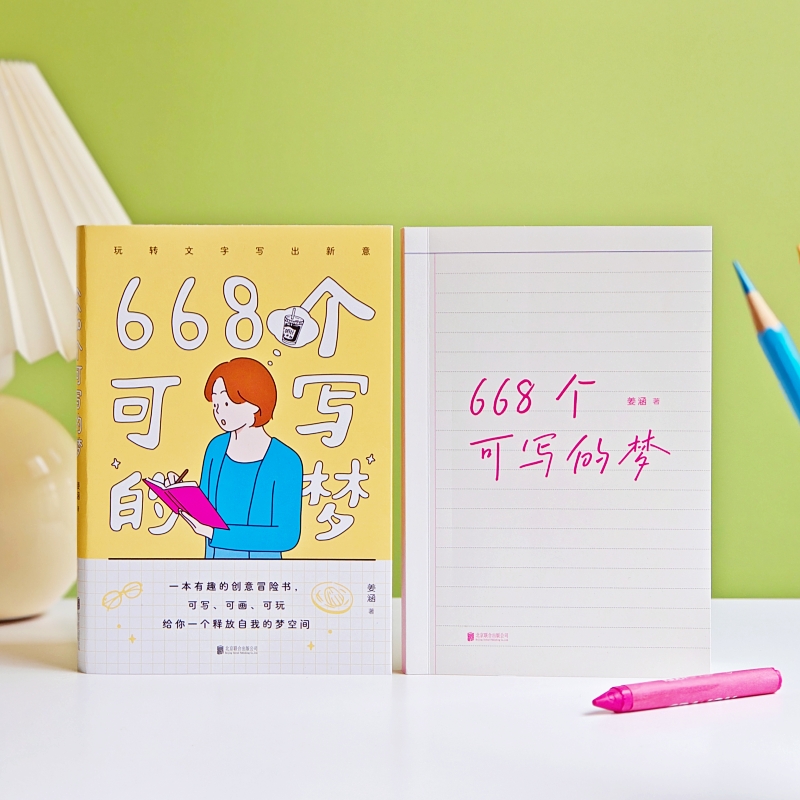 玩转文字写出新意
668个
可写
的梦
668个可写的梦
姜涵
一本有趣的创意冒险书，
可写、可画、可玩
给你一个释放自我的梦空间
姜涵 著
北京联合出版公司
668个
姜涵 著
可写的梦
北京联合出版公司